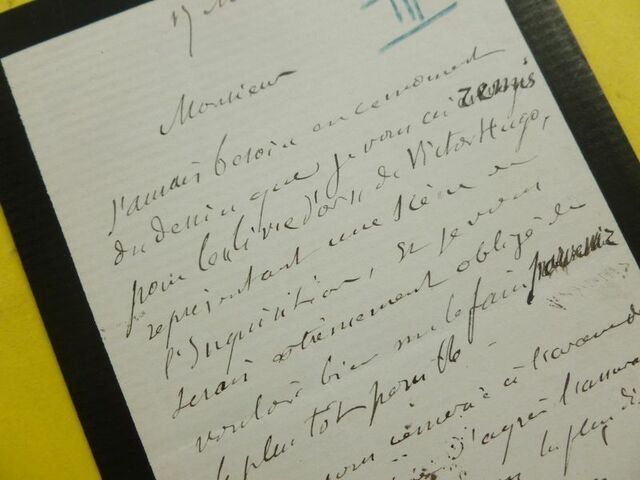 17 M
III
Monsieur
J'aurais besoin en ce moment
du dessin que je vous ai remis
pour le livre d'or de Victor Hugo,
représentant une scène de
l'Inquisition, et je vous
serais extrêmement obligé de
vouloir bien me le faire parvenir
le plus tôt possible -
vous remercie à l'avance
d'agréer l'assurance
plus di